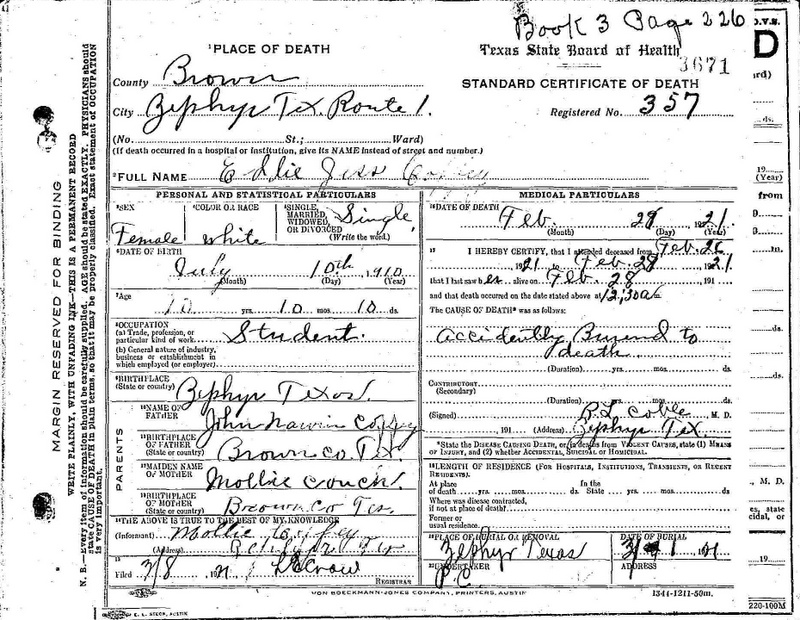 Book 3 Page 226
Texas State Board of Health
3671
STANDARD CERTIFICATE OF DEATH
Registered No. 357
¹PLACE OF DEATH
County Brown
City Zephyr Tex. Route 1.
(No. St.; Ward)
(If death occurred in a hospital or institution, give its NAME instead of street and number.)
²FULL NAME Eddie Jess Coffey
MARGIN RESERVED FOR BINDING
WRITE PLAINLY, WITH UNFADING INK—THIS IS A PERMANENT RECORD
N. B.—Every item of information should be carefully supplied. AGE should be stated EXACTLY. PHYSICIANS should
state CAUSE OF DEATH in plain terms, so that it may be properly classified. Exact statement of OCCUPATION
is very important.
PERSONAL AND STATISTICAL PARTICULARS
³SEX Female
⁴COLOR OR RACE white
⁵SINGLE, MARRIED, WIDOWED OR DIVORCED Single
(Write the word.)
⁶DATE OF BIRTH
July 10th 1910
(Month) (Day) (Year)
⁷Age
10 yrs. 10 mos. 10 ds.
⁸OCCUPATION
(a) Trade, profession, or
particular kind of work. Student.
(b) General nature of industry,
business or establishment in
which employed (or employer).
⁹BIRTHPLACE
(State or country) Zephyr Texas.
PARENTS
¹⁰NAME OF
FATHER John Coffey
¹¹BIRTHPLACE
OF FATHER
(State or country) Brown Co. Tex
¹²MAIDEN NAME
OF MOTHER Mollie Crouch
¹³BIRTHPLACE
OF MOTHER
(State or country) Brown Co Tex.
¹⁴THE ABOVE IS TRUE TO THE BEST OF MY KNOWLEDGE
(Informant) Mollie Coffey
(Address) Zephyr Tex
¹⁵
Filed 3/8 1921
REGISTRAR
MEDICAL PARTICULARS
¹⁶DATE OF DEATH
Feb. 28 1921.
(Month) (Day) (Year)
¹⁷I HEREBY CERTIFY, that I attended deceased from Feb. 26
1921 to Feb. 28 1921
that I last saw her alive on Feb. 28, 191
and that death occurred on the date stated above at 12,30 a m
The CAUSE OF DEATH* was as follows:
Accidently Burend to
death
(Duration) yrs. mos. ds.
CONTRIBUTORY
(Secondary)
(Duration) yrs. mos. ds.
(Signed) R L Coble M. D.
191 (Address) Zephyr Tex
*State the DISEASE CAUSING DEATH, or, in deaths from VIOLENT CAUSES, state (1) MEANS
OF INJURY, and (2) whether ACCIDENTAL, SUICIDAL OR HOMICIDAL.
¹⁸LENGTH OF RESIDENCE (FOR HOSPITALS, INSTITUTIONS, TRANSIENTS, OR RECENT
RESIDENTS).
At place In the
of death yrs. mos. ds. State yrs. mos. ds.
Where was disease contracted,
if not at place of death?
Former or
usual residence.
¹⁹PLACE OF BURIAL OR REMOVAL Zephyr Texas
DATE OF BURIAL 3/1 21
²⁰UNDERTAKER
ADDRESS
VON BOECKMANN-JONES COMPANY, PRINTERS, AUSTIN
1344-1211-50m.
E. L. STECK, AUSTIN
O.V.S.
D
ard)
ds.
19
(Year)
from
in.
ds.
ds.
, M. D.
es, state
cidal, or
19
220-100M